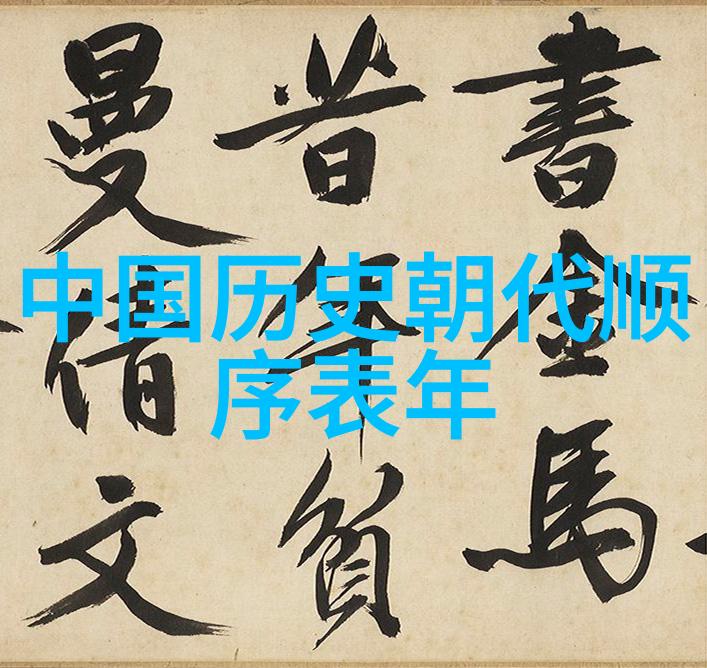 中国历史朝代顺
序表年
書金馬
昔年貧
曼倩文